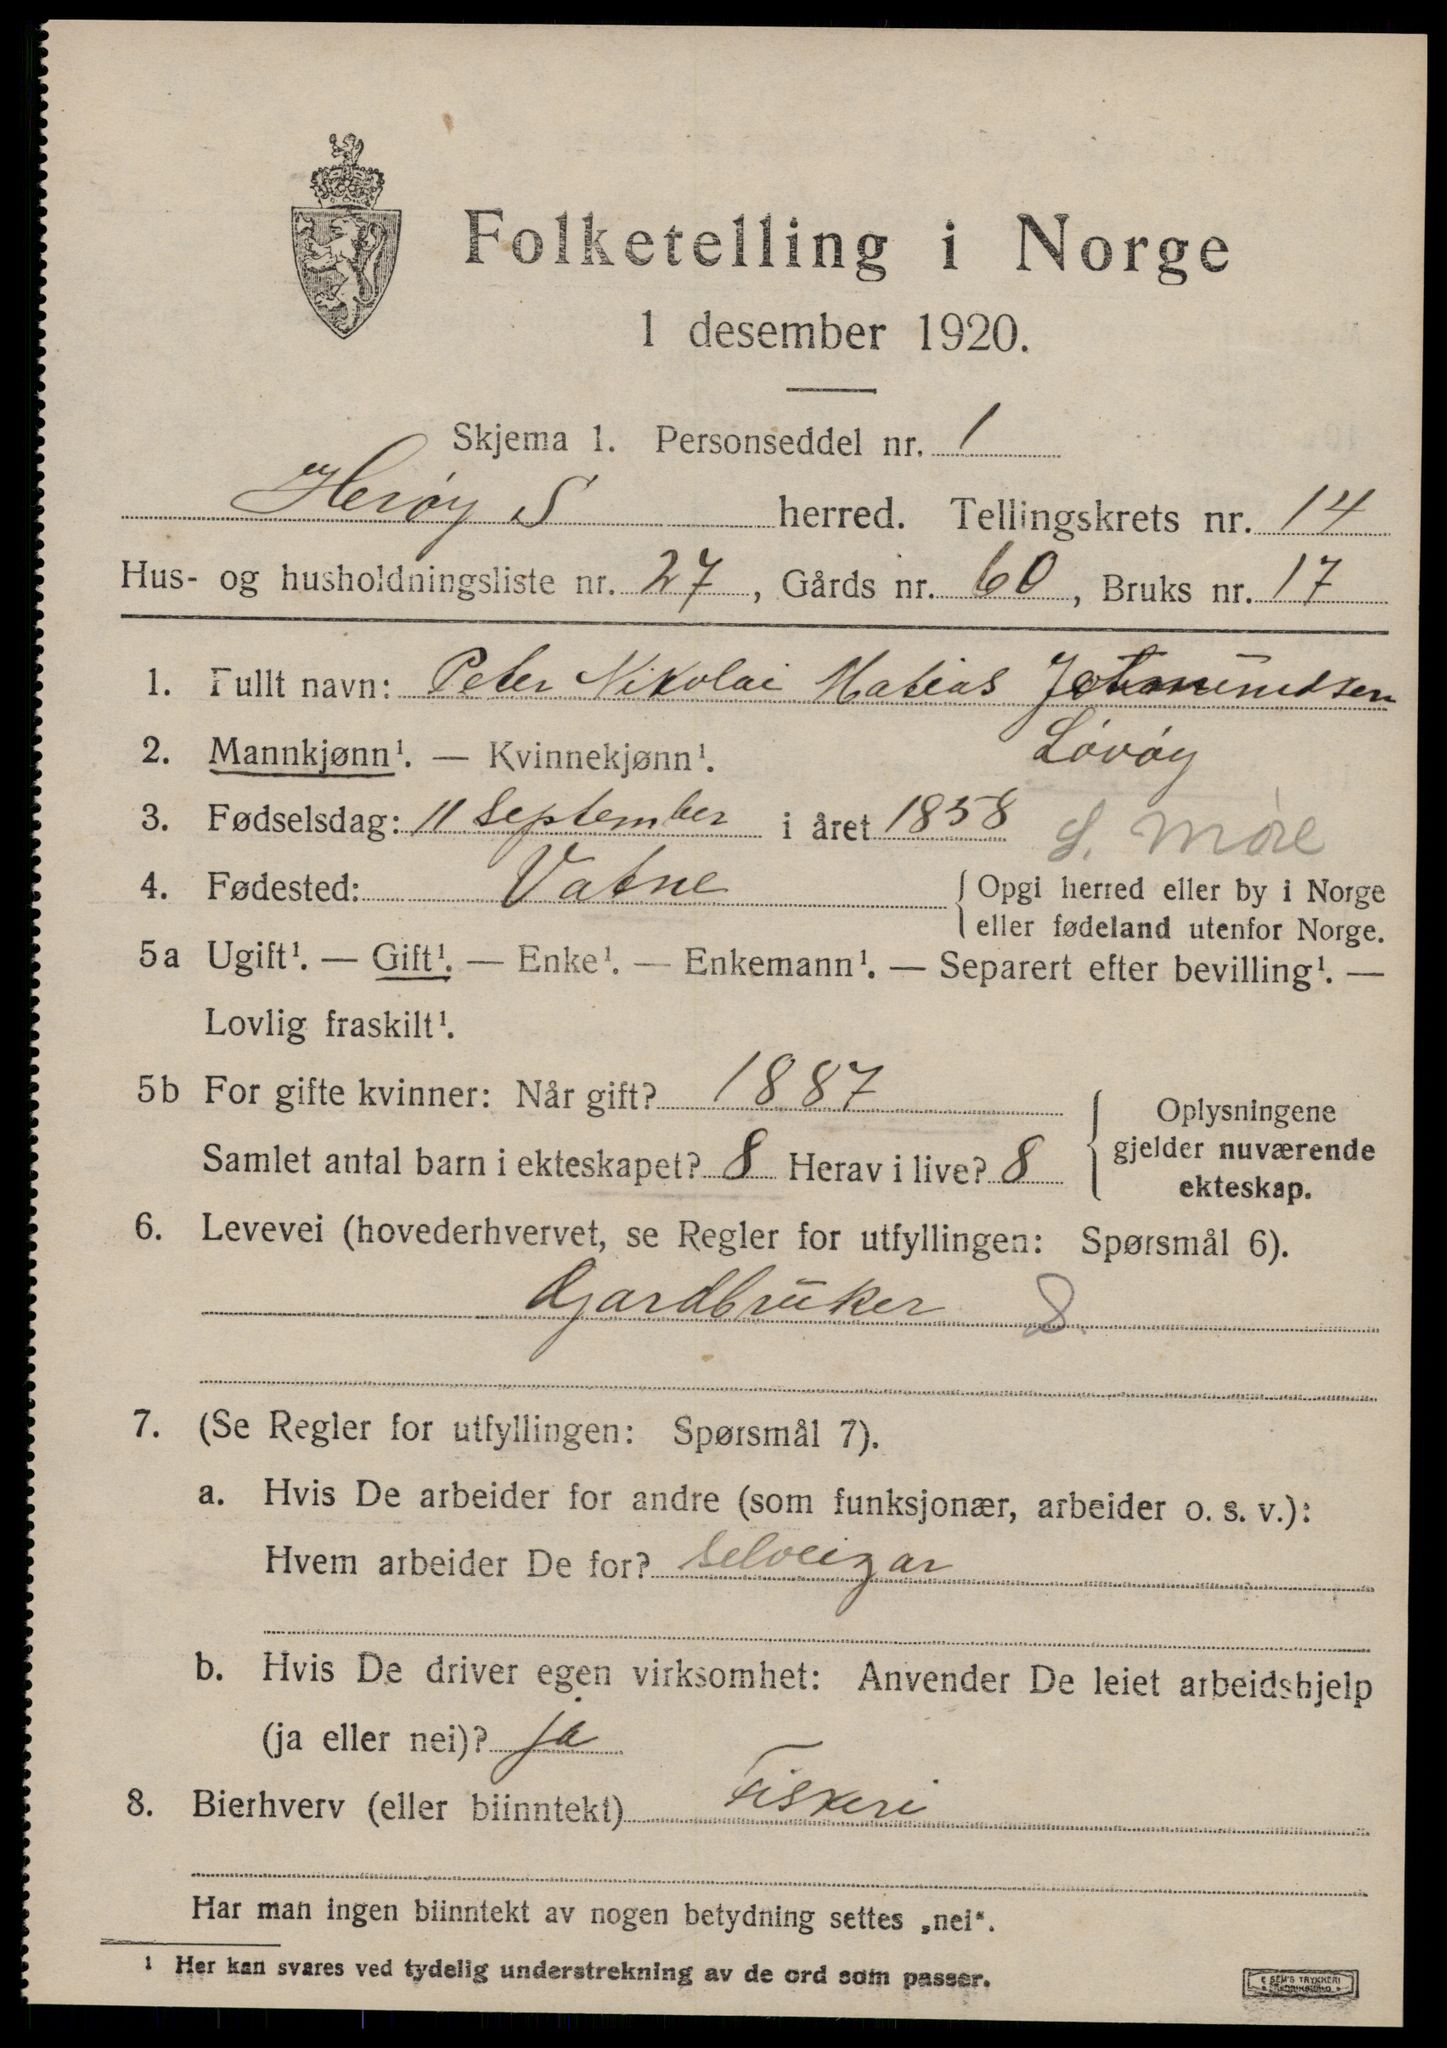 Folketelling i Norge
1 desember 1920.
Skjema 1. Personseddel nr. 1
Herøy S herred. Tellingskrets nr. 14
Hus- og husholdningsliste nr. 27, Gårds nr. 60, Bruks nr. 17
1. Fullt navn: Peter Nikolai Matias
2. Mannkjønn¹. — Kvinnekjønn¹. Løvøy
3. Fødselsdag: 11 September i året 1858 S. Møre
4. Fødested: Vatne {Opgi herred eller by i Norge
eller fødeland utenfor Norge.
5a Ugift¹. — Gift¹. — Enke¹. — Enkemann¹. — Separert efter bevilling¹. —
Lovlig fraskilt¹.
5b For gifte kvinner: Når gift? 1887
Samlet antal barn i ekteskapet? 8 Herav i live? 8
{Oplysningene
gjelder nuværende
ekteskap.
6. Levevei (hovederhvervet, se Regler for utfyllingen: Spørsmål 6).
Gjardbruker S.
7. (Se Regler for utfyllingen: Spørsmål 7).
a. Hvis De arbeider for andre (som funksjonær, arbeider o. s. v.):
Hvem arbeider De for? selveigar
b. Hvis De driver egen virksomhet: Anvender De leiet arbeidshjelp
(ja eller nei)? ja
8. Bierhverv (eller biinntekt) Fiskeri
Har man ingen biinntekt av nogen betydning settes „nei“.
¹ Her kan svares ved tydelig understrekning av de ord som passer.
E SEM'S TRYKKERI